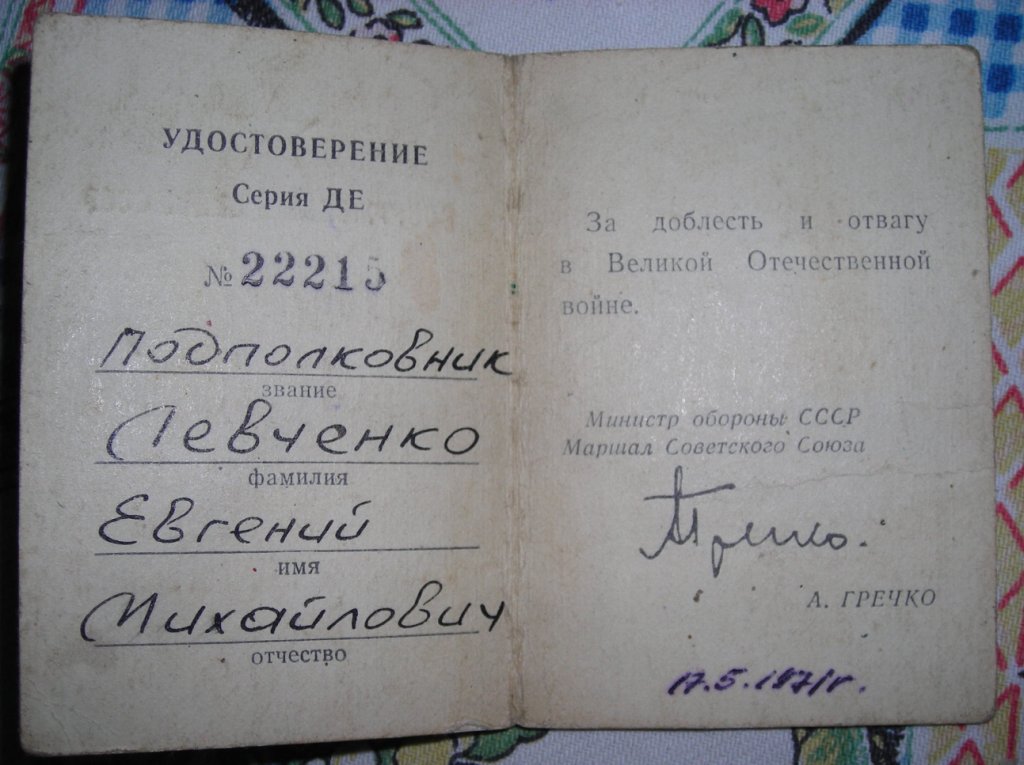 УДОСТОВЕРЕНИЕ
Серия ДЕ
№ 22215
Подполковник
звание
Левченко
фамилия
Евгений
имя
Михайлович
отчество
За доблесть и отвагу
в Великой Отечественной
войне.
Министр обороны СССР
Маршал Советского Союза
АГречко.
А. ГРЕЧКО
17.5.1971г.